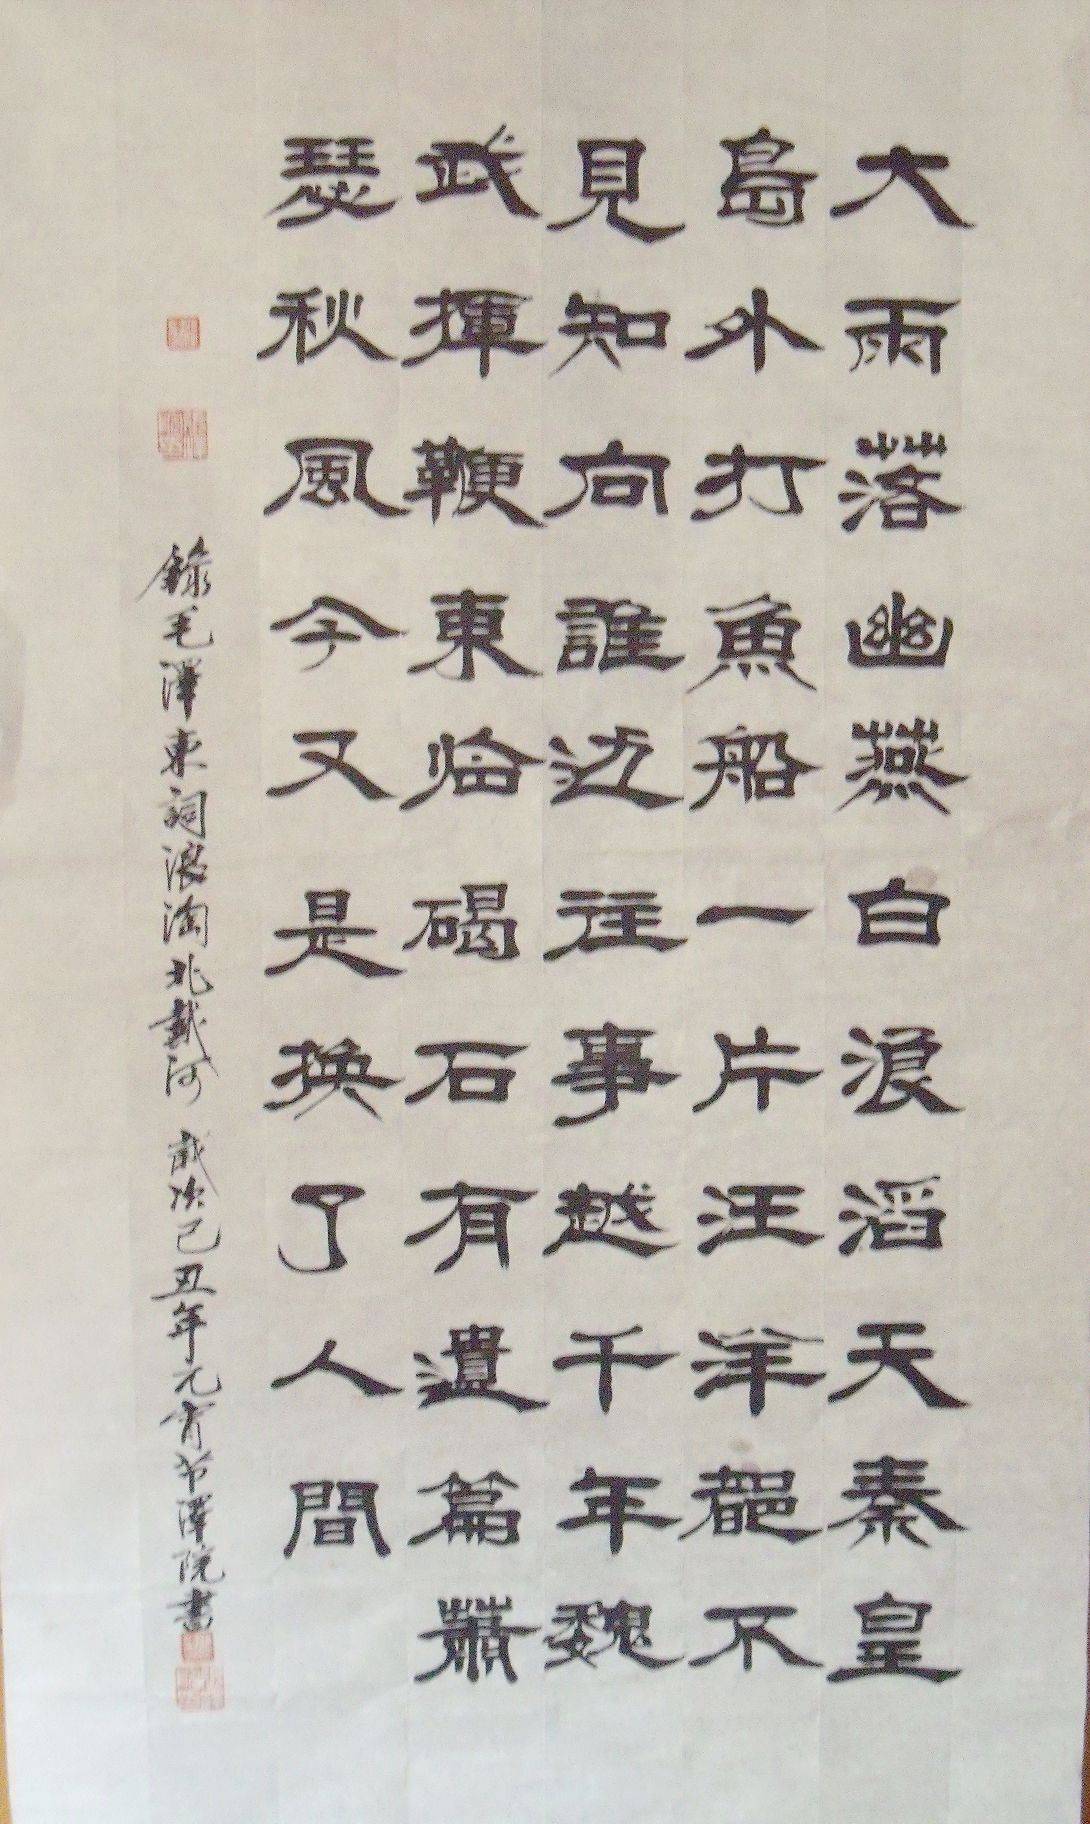 大雨落幽燕白浪滔天秦皇
島外打魚船一片汪洋都不
見知向誰边往事越千年魏
武揮鞭東临碣石有遺篇蕭
瑟秋風今又是換了人間
錄毛澤東詞浪淘北戴河 歲次己丑年元宵书澤院書